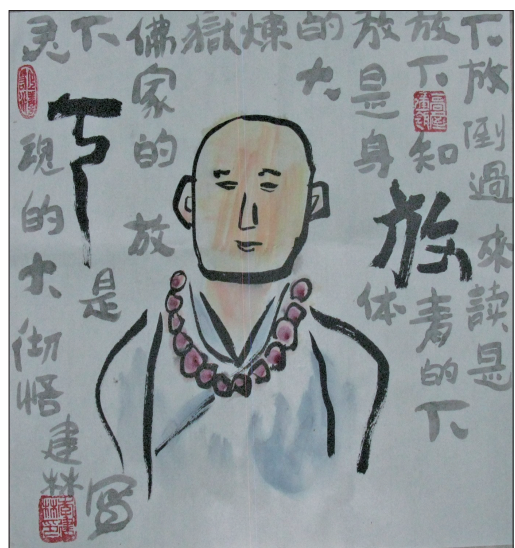 放下
下放倒過來讀是
放下知青的下
放是身体
的大
煉
獄
佛家的放
下是
灵魂的大彻悟
建林
写